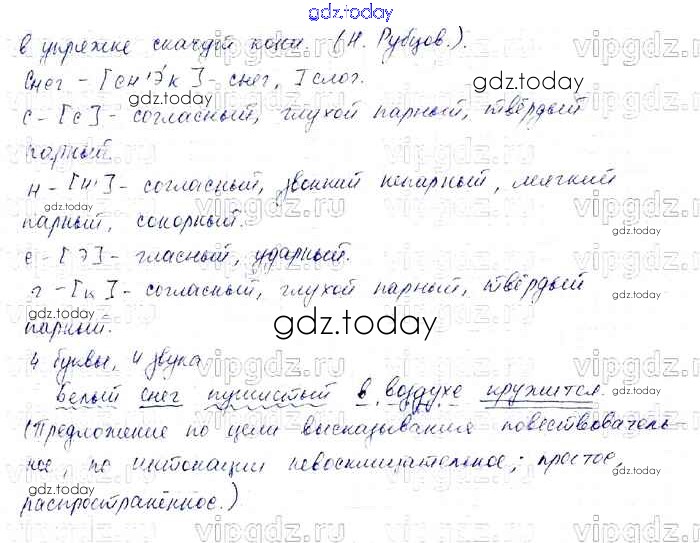 gdz.today
в упряжке скачут кони. (Н. Рубцов.).
Снег - [сн'э́к] - снег, 1 слог.
gdz.today
с - [с] - согласный, глухой парный, твёрдый
парный.
н - [н'] - согласный, звонкий непарный, мягкий
парный, сонорный.
е - [э] - гласный, ударный.
г - [к] - согласный, глухой парный, твёрдый
парный.
gdz.today
4 буквы, 4 звука
Белый снег пушистый в воздухе кружится.
(Предложение по цели высказывания повествователь-
ное, по интонации невосклицательное; простое,
распространённое.)
gdz.today
vipgdz.ru